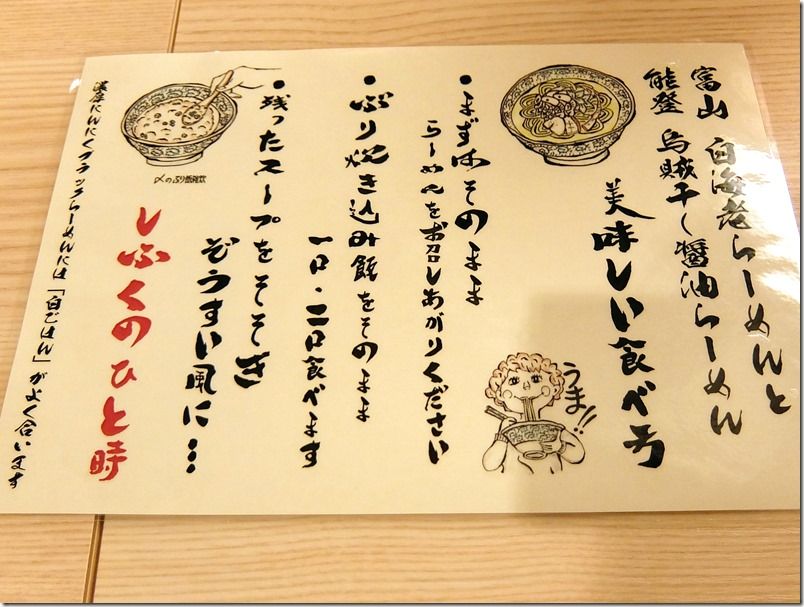 富山 白海老らーめんと
能登 烏賊干し醤油らーめん
美味しい食べ方
うま!!
・まずはそのまま
らーめんをお召しあがりください
・ぶり炊き込み飯をそのまま
一口・二口食べます
・残ったスープをそそぎ
ぞうすい風に…
〆のぶり飯雑炊
しふくのひと時
濃厚にんにくブラックらーめんには「白ごはん」がよく合います